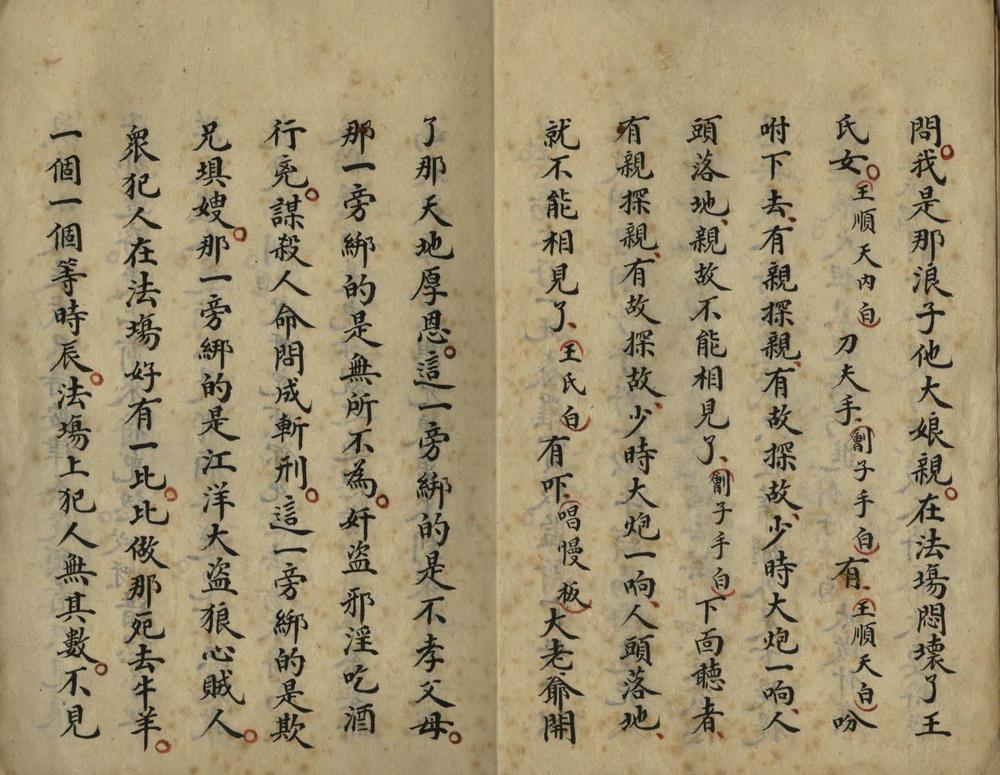 問我是那浪子他大娘親在法塲悶壞了王
氏女王順天内白刀夫手劊子手白有王順天白吩
咐下去有親探親有故探故少時大炮一响人
頭落地親故不能相見了劊子手白下面聽者
有親探親有故探故少時大炮一响人頭落地
就不能相見了王氏白有吓唱慢板大老爺開
了那天地厚恩這一旁綁的是不孝父母
那一旁綁的是無所不為奸盜邪淫吃酒
行兇謀殺人命問成斬刑這一旁綁的是欺
兄埧嫂那一旁綁的是江洋大盜狼心賊人
衆犯人在法塲好有一比比做那宛去牛羊
一個一個等時辰法塲上犯人無其數不見